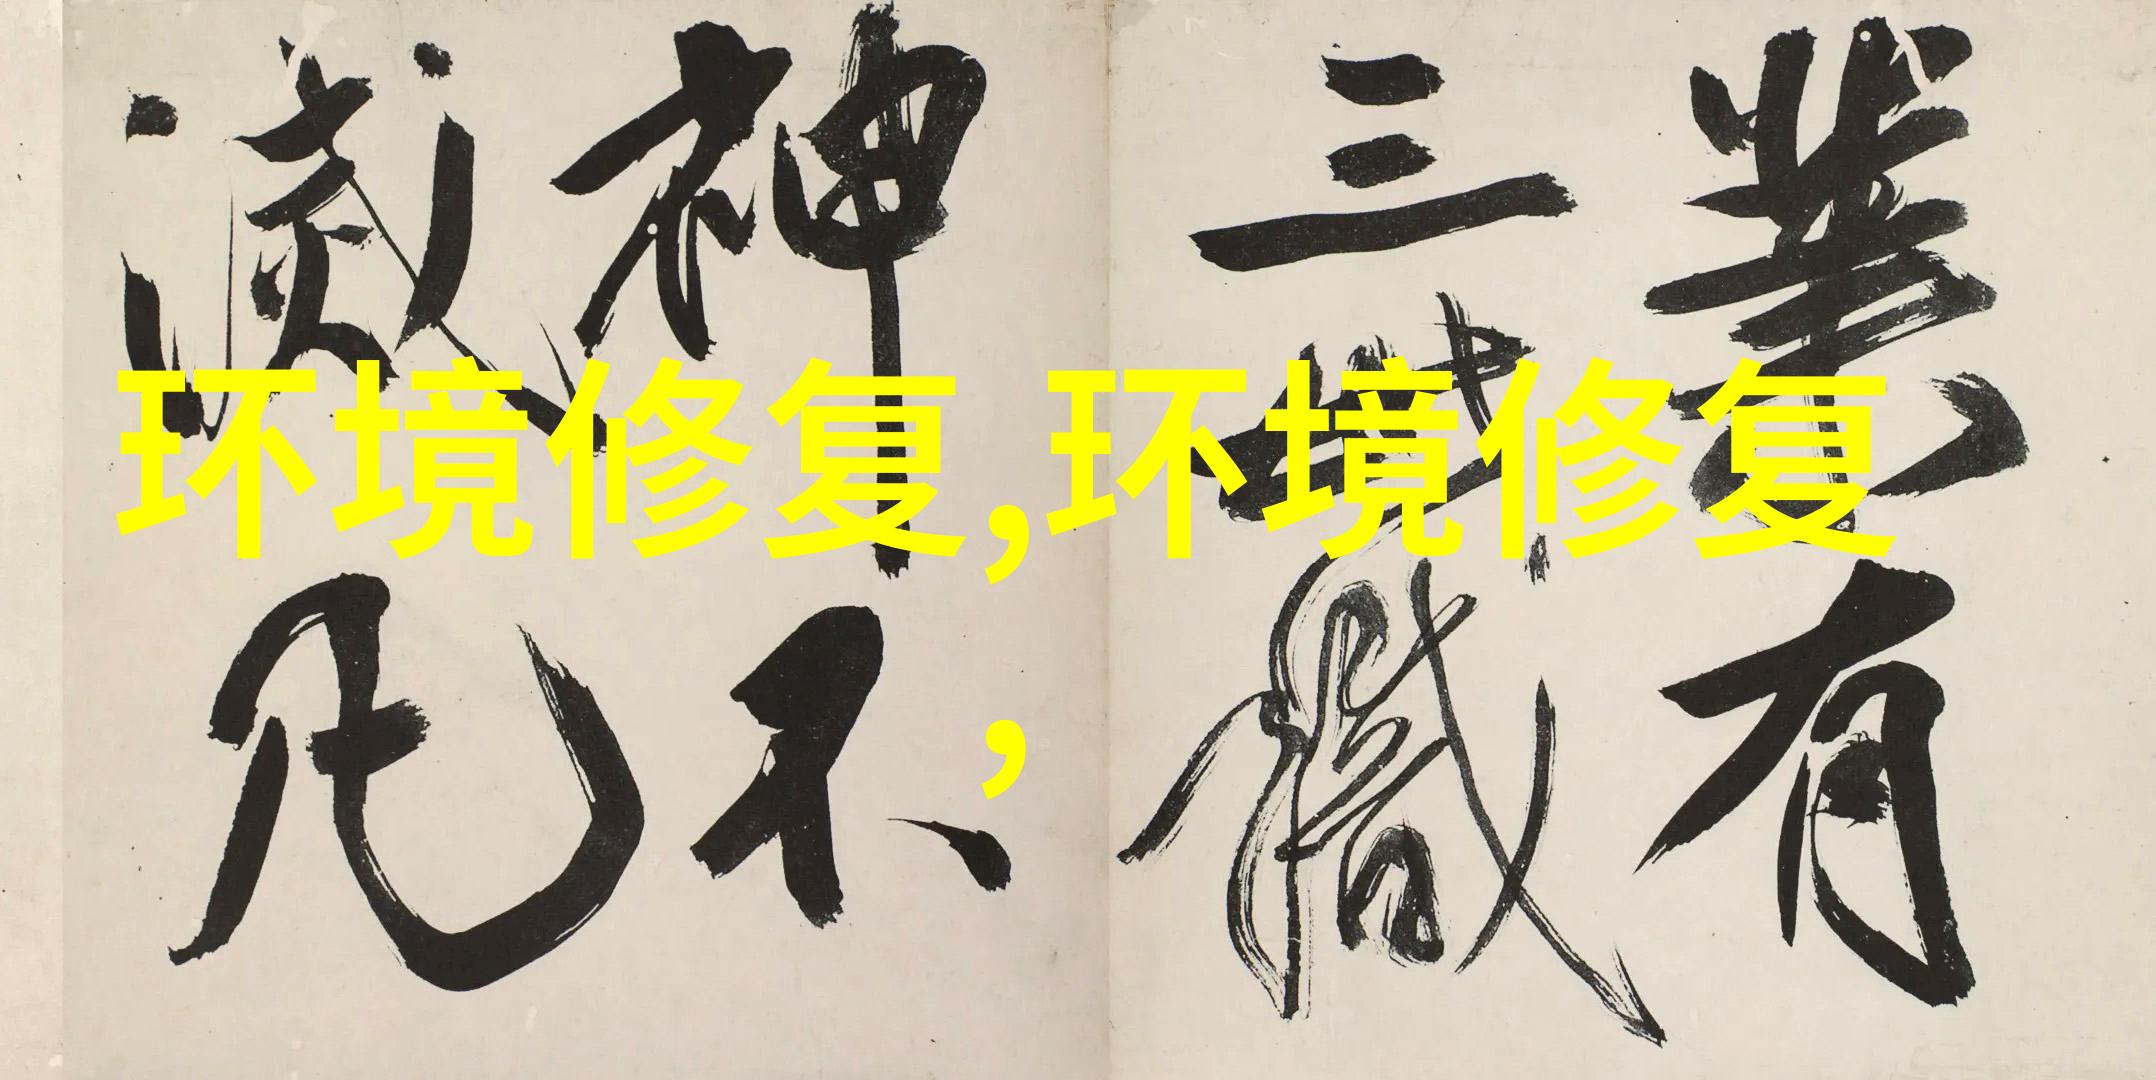 業有
三世識
神不
滅凡
环境修复,环境修复
,